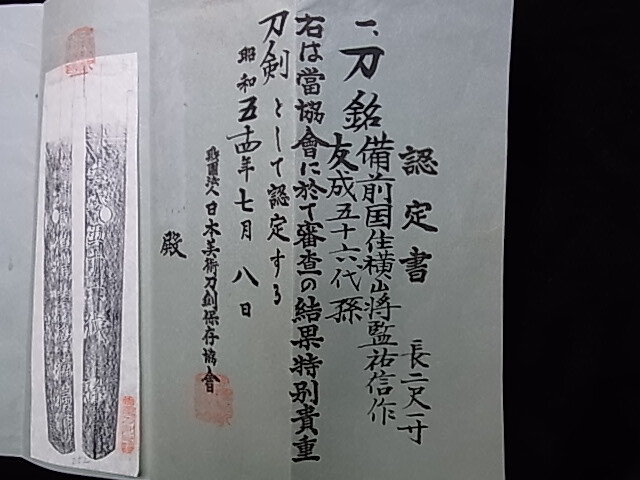 認定書
一、刀 銘 備前国住横山将監祐信作
友成五十六代孫
長二尺一寸
右は當協會に於て審査の結果特別貴重
刀剣として認定する
昭和五十四年七月八日
財團法人日本美術刀剣保存協會
殿